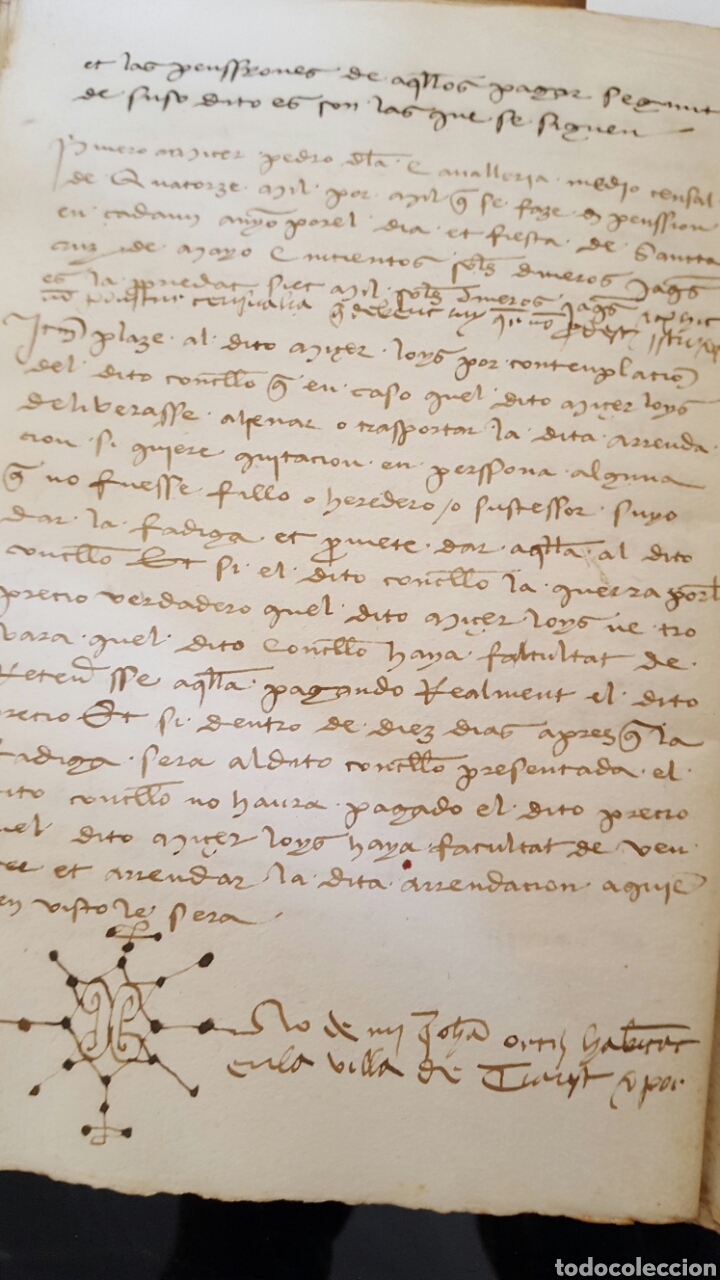 et las penssiones de aqllos pagar segunt
de suso dito es son las que se siguen
pedro dla Cavalleria medio censal
de Quatorze mil por mil q se faze d penssion
en cadaun anyo porel dia et fiesta de Sancta
cruz de mayo sols dineros Jaqs
es la propiedat siet mil sols dineros Jaqs
Item plaze al dito Miçer loys por contemplacion
del dito concello q en caso quel dito miçer loys
deliverasse alienar o trasportar la dita arrenda
cion si quiere quitacion en perssona alguna
q no fuesse fillo o heredero /o sucessor suyo
dar la fadiga et promete dar aqlla al dito
concllo Et si el dito concllo la querra porl
precio verdadero quel dito miçer loys ne tro
vara quel dito concllo haya facultat de
Reten sse aqlla pagando Realment el dito
precio Et si dentro de diez dias apres q la
fadiga sera aldito concllo presentada el
dito concllo no haura pagado el dito precio
quel dito miçer loys haya facultat de ven
der et arrendar la dita arrendacion aquie
ven visto le sera
Sig no de mi Johan ortiz habitant
enla villa de et por
todocoleccion